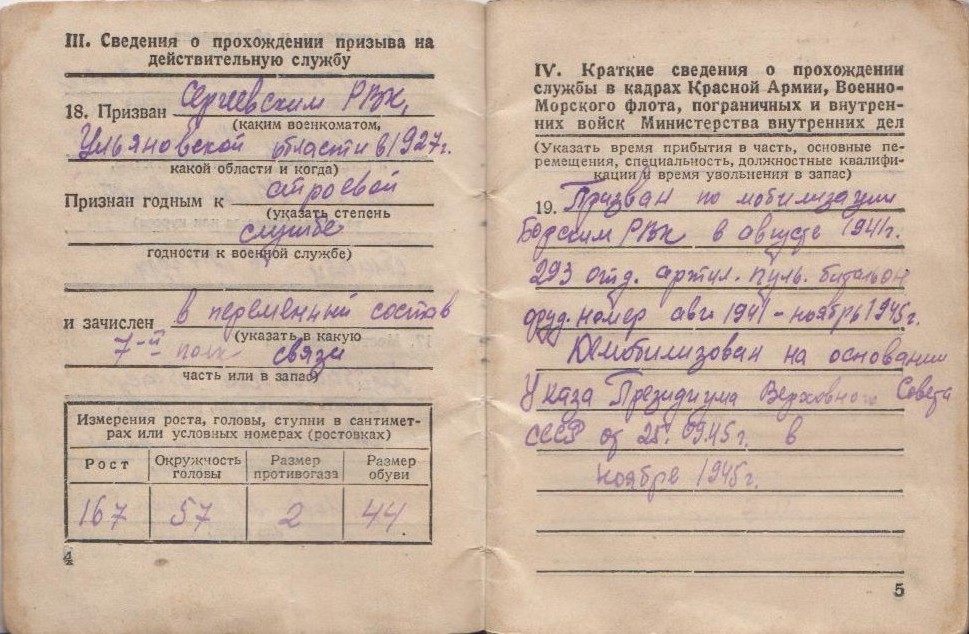 III. Сведения о прохождении призыва на
действительную службу
18. Призван Сергиевским РВК,
(каким военкоматом,
Ульяновской области в 1927г.
какой области и когда)
Признан годным к строевой
(указать степень
службе
годности к военной службе)
и зачислен в переменный состав
(указать в какую
7-й полк связи
часть или в запас)
Измерения роста, головы, ступни в сантимет-
рах или условных номерах (ростовках)
Рост Окружность головы Размер противогаза Размер обуви
167 57 2 44
4
IV. Краткие сведения о прохождении
службы в кадрах Красной Армии, Военно-
Морского флота, пограничных и внутрен-
них войск Министерства внутренних дел
(Указать время прибытия в часть, основные пе-
ремещения, специальность, должностные квалифи-
кации и время увольнения в запас)
19. Призван по мобилизации
Борским РВК в августе 1941г.
293 отд. артил. пуль. батальон
оруд. номер авг 1941 – ноябрь 1945г.
Демобилизован на основании
Указа Президиума Верховного Совета
СССР от 25.09.45г. в
ноябре 1945г.
5